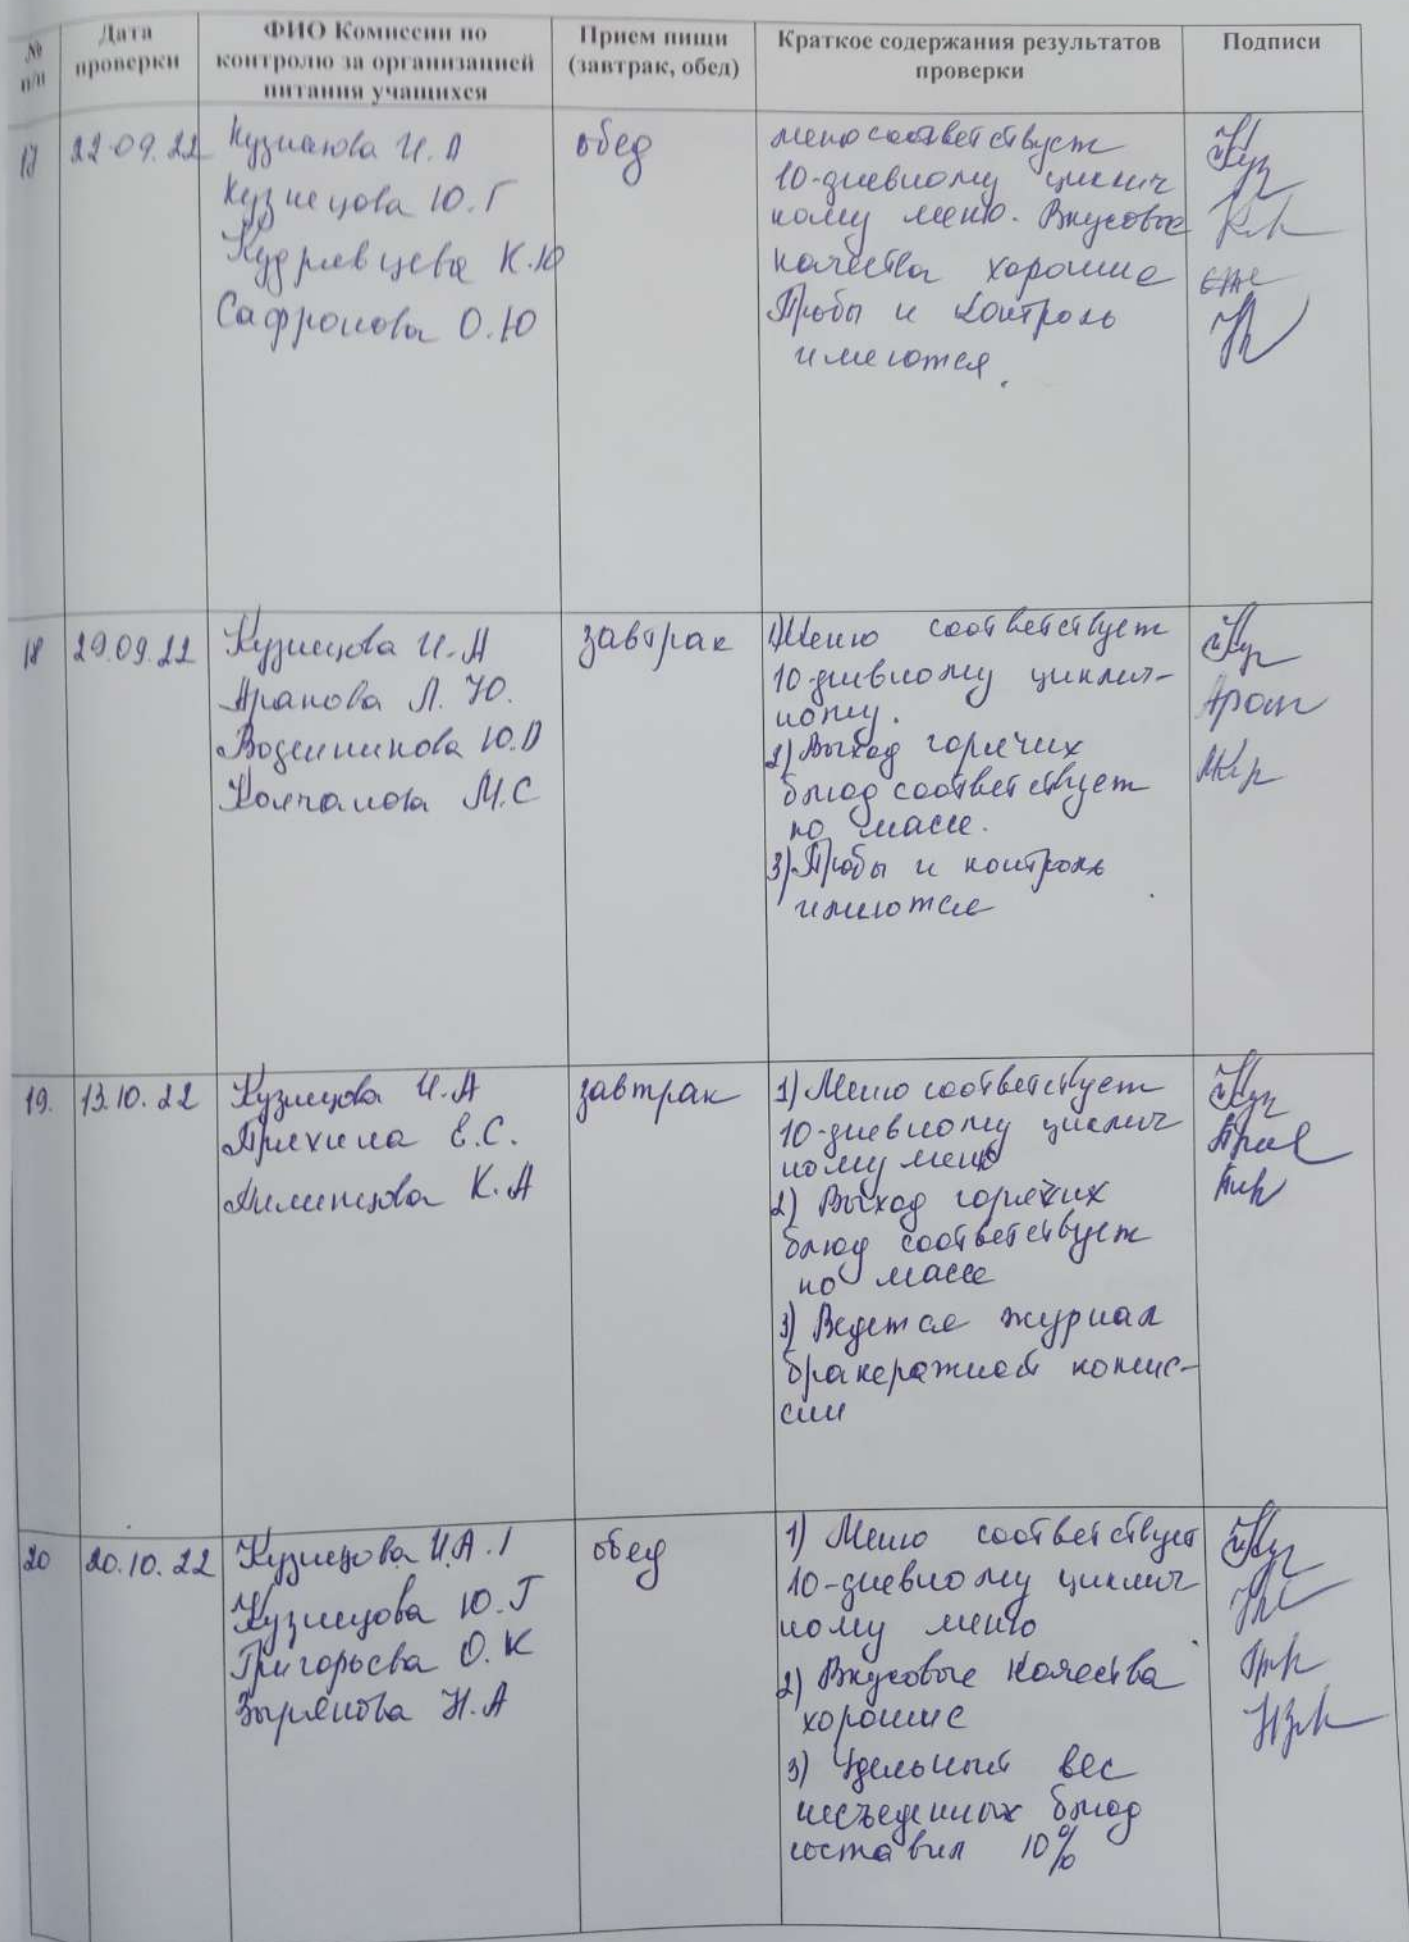 №
п/п
Дата
проверки
ФИО Комиссии по
контролю за организацией
питания учащихся
Прием пищи
(завтрак, обед)
Краткое содержания результатов
проверки
Подписи
17
22.09.22
Кузнецова И.А
Кузнецова Ю.Г
Кудрявцева К.Ю
Сафронова О.Ю
обед
меню соответствует
10-дневному циклич
ному меню. Вкусовые
качества хорошие
Пробы и контроль
имеются.
18
29.09.22
Кузнецова И.А
Арапова Л.Ю.
Воденникова Ю.В
Колпакова М.С
завтрак
1) Меню соответствует
10-дневному циклич-
ному.
2) Выход горячих
блюд соответствует
по массе.
3) Пробы и контроль
имеются
19.
13.10.22
Кузнецова И.А
Пряхина Е.С.
К.А
завтрак
1) Меню соответствует
10-дневному циклич
ному меню
2) Выход горячих
блюд соответствует
по массе
3) Ведется журнал
бракеражной комис-
сии
20
20.10.22
Кузнецова И.А.
Кузнецова Ю.Г
Григорьева О.К
Зырянова Н.А
обед
1) Меню соответствует
10-дневному циклич
ному меню
2) Вкусовые качества
хорошие
3) Удельный вес
несъеденных блюд
составил 10%